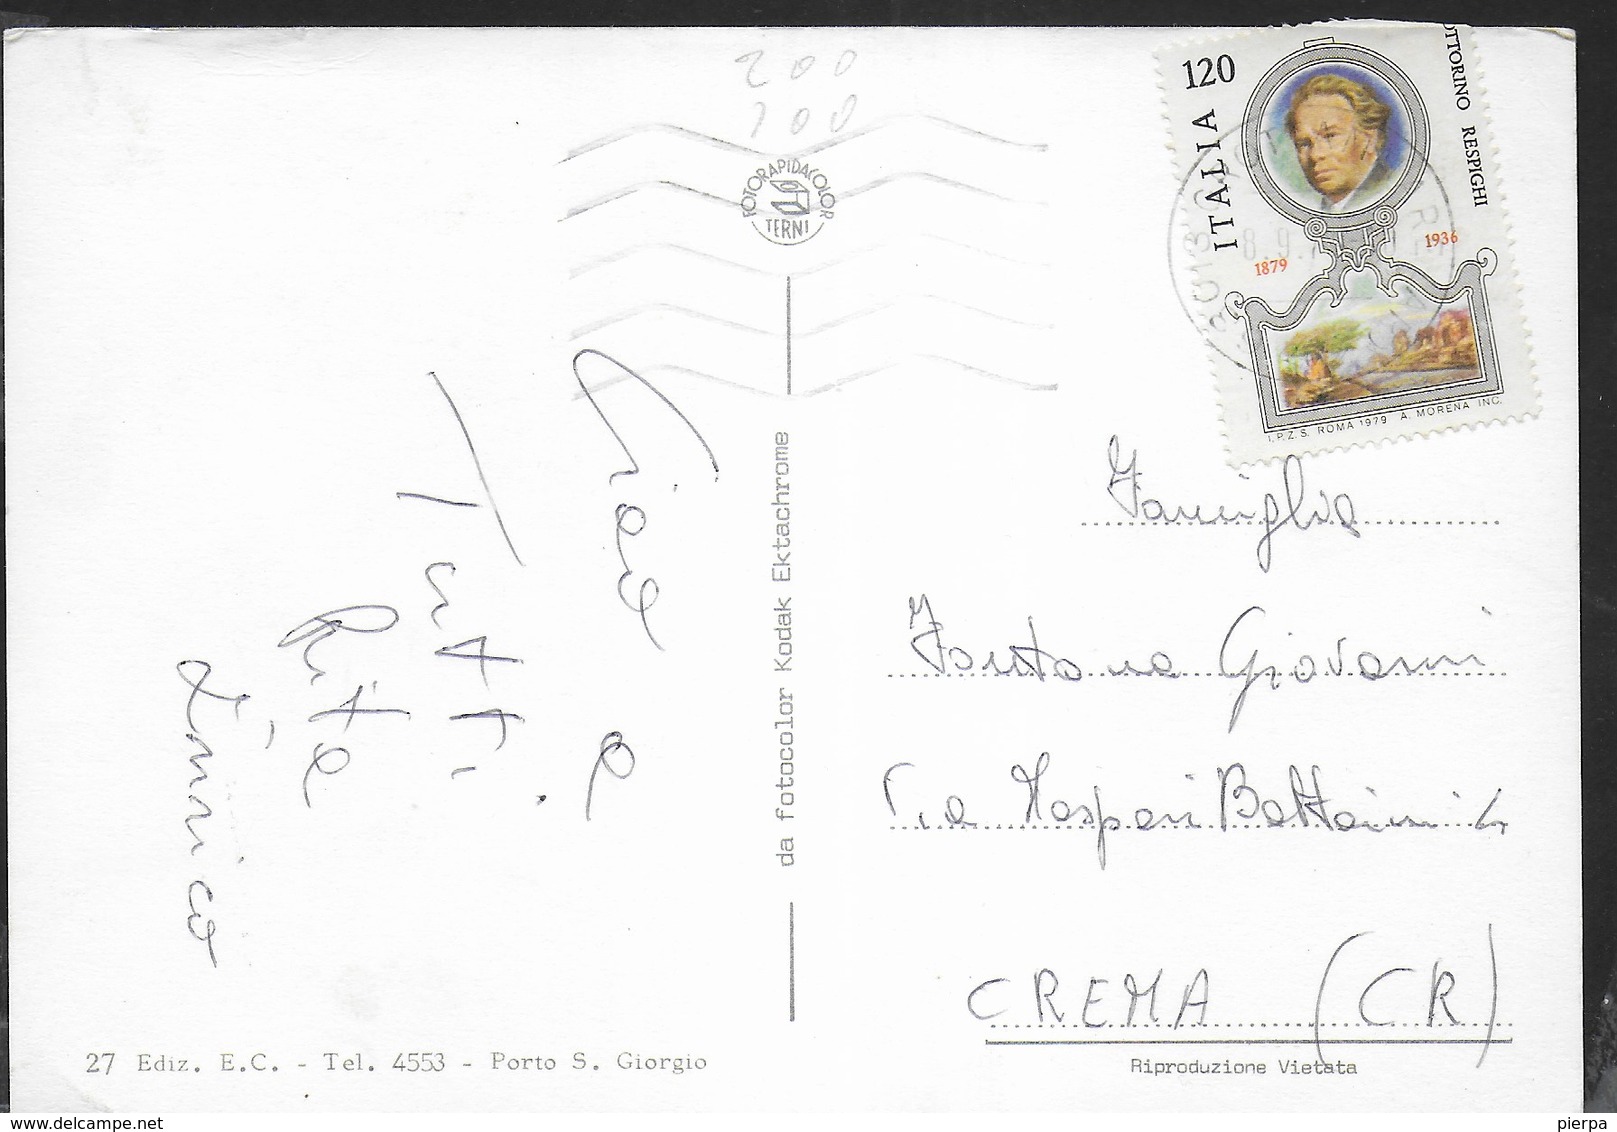 200
100
FOTORAPIDACOLOR
TERNI
ITALIA 120
OTTORINO RESPIGHI
1879
1936
I.P.Z.S. ROMA 1979 A. MORENA INC.
Ciao a
Tutti
Rita
Enrico
da fotocolor Kodak Ektachrome
Famiglia
Fontana Giovanni
Via Gaspari Bottaini
CREMA (CR)
27 Ediz. E.C. - Tel. 4553 - Porto S. Giorgio
Riproduzione Vietata
delcampe.net
pierpa